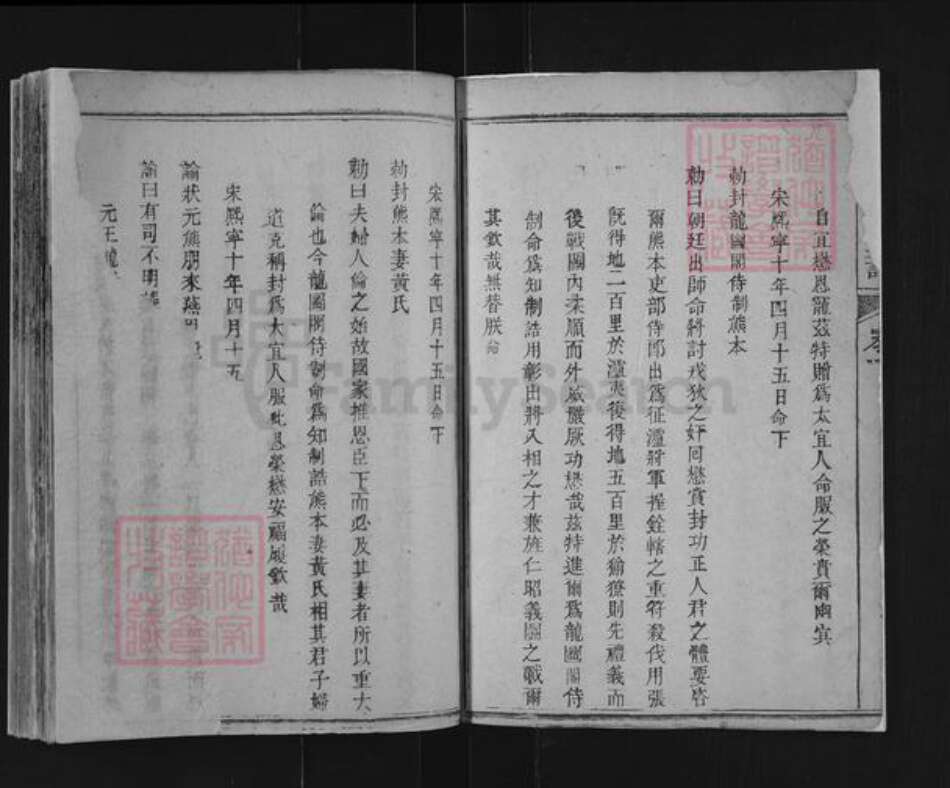 自宜懋恩寵茲特贈爲太宜人命服之榮賁爾幽冥
宋熙寧十年四月十五日命下
勅封龍圖閣侍制熊本
勅曰朝廷出師命將討戎狄之奸囘懋賞封功正人君之體要咨
爾熊本吏部侍郎出爲征瀘將軍握銓轄之重符殺伐用張
旣得地二百里於瀘夷後得地五百里於獠則先禮義而
後戰鬬內柔順而外威嚴厥功懋哉茲特進爾爲龍圖閣侍
制命爲知制誥用彰出將入相之才兼旌仁昭義之戰爾
其欽哉無替朕命
宋熙寧十年四月十五日命下
勅封熊本妻黃氏
勅曰夫婦人倫之始故國家推恩臣下而必及其妻者所以重大
倫也今龍圖閣侍制命爲知制誥熊本妻黃氏相其君子婦
道克稱封爲太宜人服玭恩榮懋安福履欽哉
宋熙寧十年四月十五
諭狀元熊朋來
諭曰有司不明
元王龍
FamilySearch